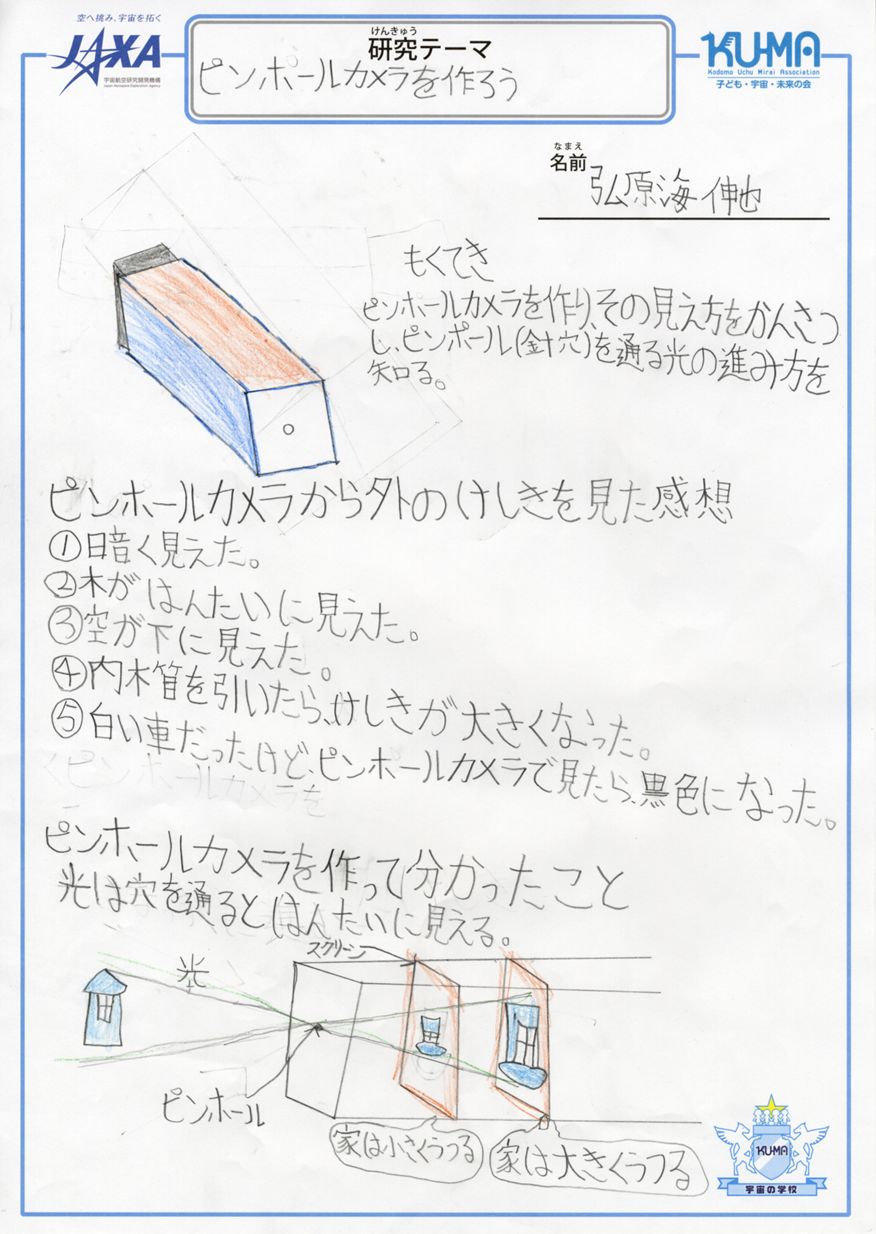 空へ挑み、宇宙を拓く
JAXA
宇宙航空研究開発機構
Japan Aerospace Exploration Agency
けんきゅう
研究テーマ
ピンホールカメラを作ろう
KU-MA
Kodomo Uchu Mirai Association
子ども・宇宙・未来の会
なまえ
名前
弘原海 伸也
もくてき
ピンホールカメラを作り、その見え方をかんさつ
し、ピンホール(針穴)を通る光の進み方を
知る。
ピンホールカメラから外のけしきを見た感想
①暗く見えた。
②木がはんたいに見えた。
③空が下に見えた。
④内木管を引いたら、けしきが大きくなった。
⑤白い車だったけど、ピンホールカメラで見たら、黒色になった。
ピンホールカメラを
ピンホールカメラを作って分かったこと
光は穴を通るとはんたいに見える。
スクリーン
光
ピンホール
家は小さくうつる
家は大きくうつる
KU-MA
宇宙の学校